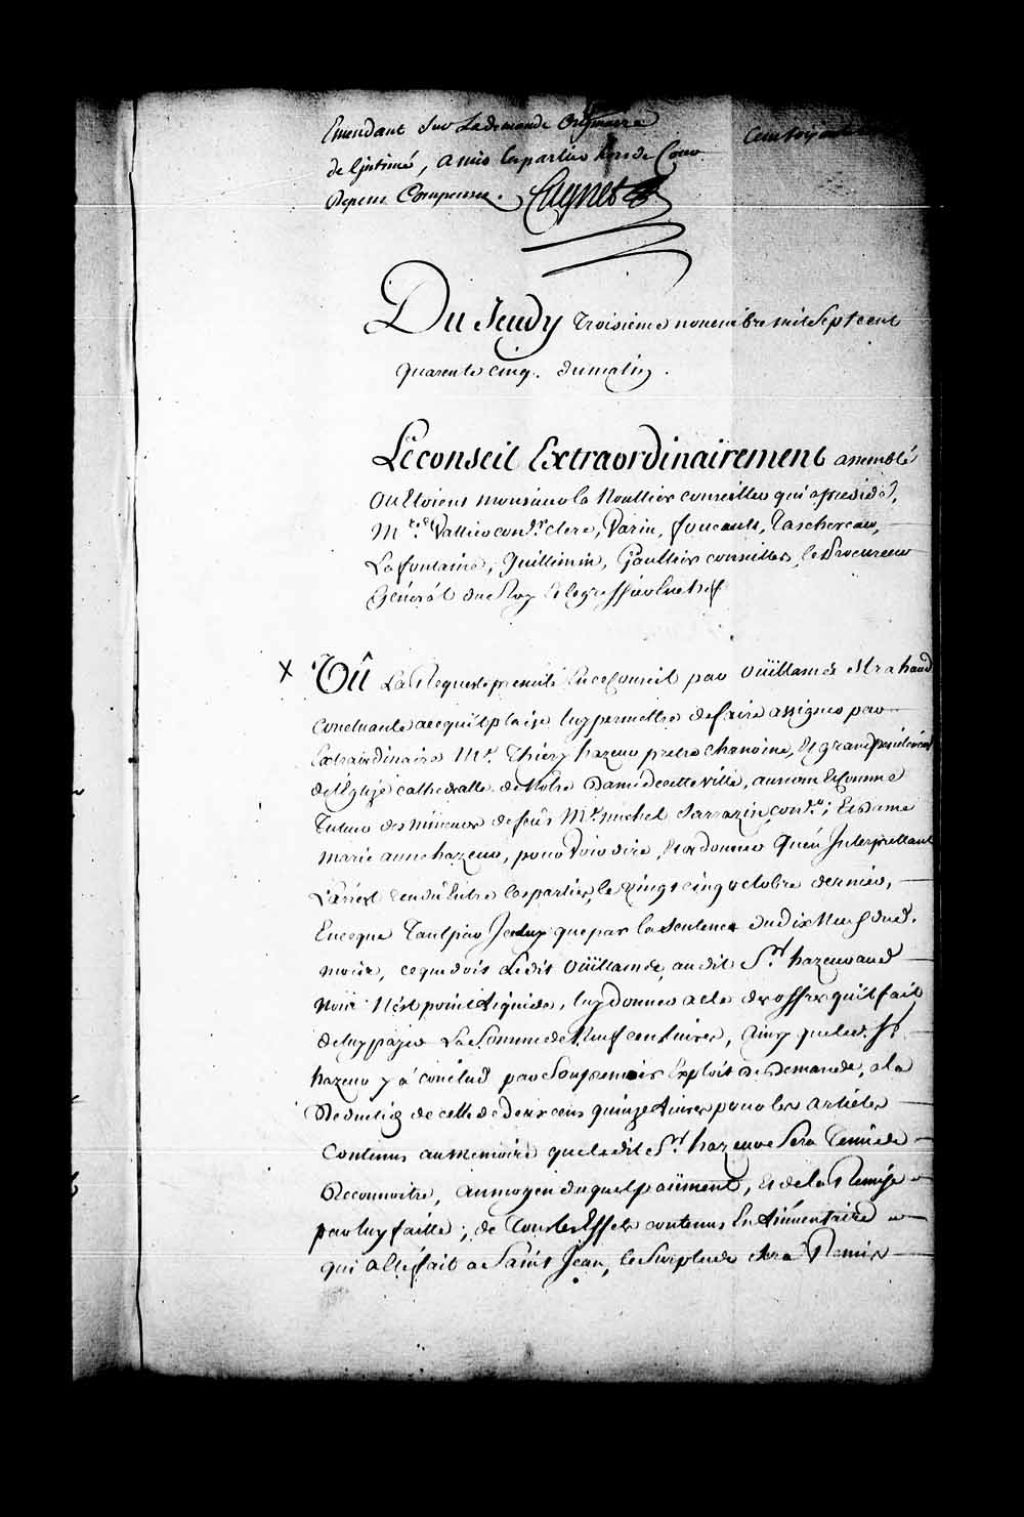 Emendant sur La demande Originaire
de l'jntimé, a mis les parties hors de Cour
Depens Compensés. Cugnet
Du Jeudy troisieme novembre mil Sept cent
quarente cinq. du matin.
Le conseil Extraordinairement assemblé
ou Etoient monsieur la Noullier conseiller qui a presidé,
Mrs. Vallier conser. clerc, Varin, foucault, Taschereau,
Lafontaine, Guillimin, Gaultier conseillers, le Procureur
Général du Roy & le greffier En chef
X Vû La Requeste presentée En ce Conseil par Vüillaume Strahaud
Concluante a ce qu'il plaise luy permettre de faire assigner par
Extraordinaire Mr. Thiery hazeur pretre chanoine, Et grand penitencier
de l'Eglize cathedralle de Notre Dame de cette ville, au nom Et comme
Tuteur des mineurs de feûs Mr. michel Sarrazin, conser.; Et Dame
Marie anne hazeur, pour voir dire, Et ordonner Qu'en Interprettant
L'arrest rendu Entre les parties, le vingt cinq octobre dernier,
En ce que Tant par Jceluy que par la Sentence du dix Neuf dud.
mois, ce que doit Ledit Vüillaume, au dit Sr. hazeur aud
Nom n'est point Liquide, luy donner acte des offres qu'il fait
de luy payer La Somme de Neuf cent livres, Ainsy que led. Sr.
hazeur y a conclud par Son premier Exploit de Demande, a la
Deduction de celle de Deux cens quinze Livres pour les articles
Contenus au Memoire que ledit Sr. hazeur Sera Tenu de
Reconnoitre, au moyen duquel paiiment, et de la Remise
par luy faitte; de Tous les Effets contenus En Linventaire
qui a Eté fait a Saint Jean, le Surplus Sera Remis